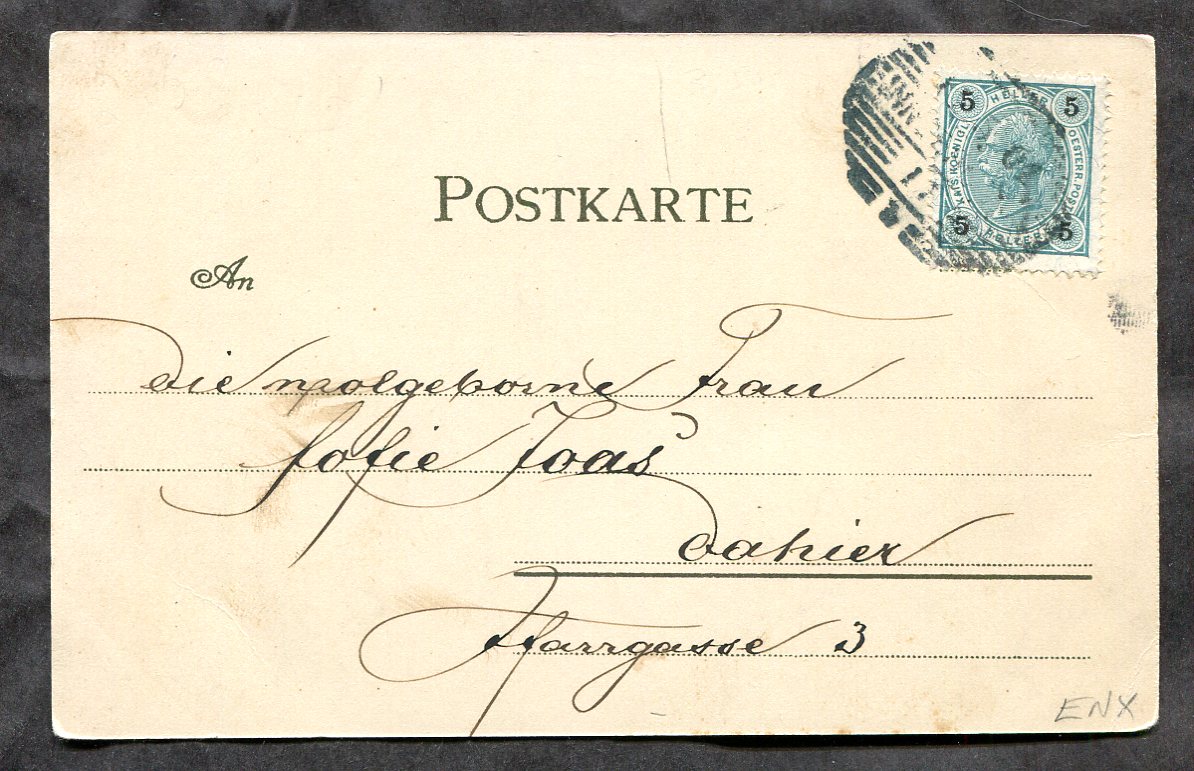 POSTKARTE
5 HELLER 5
KAIS KOENIGL OESTERR. POST
5 HELLER 5
An
die wolgeborne Frau
Sofie Joas
dahier
Pfarrgasse 3
ENX